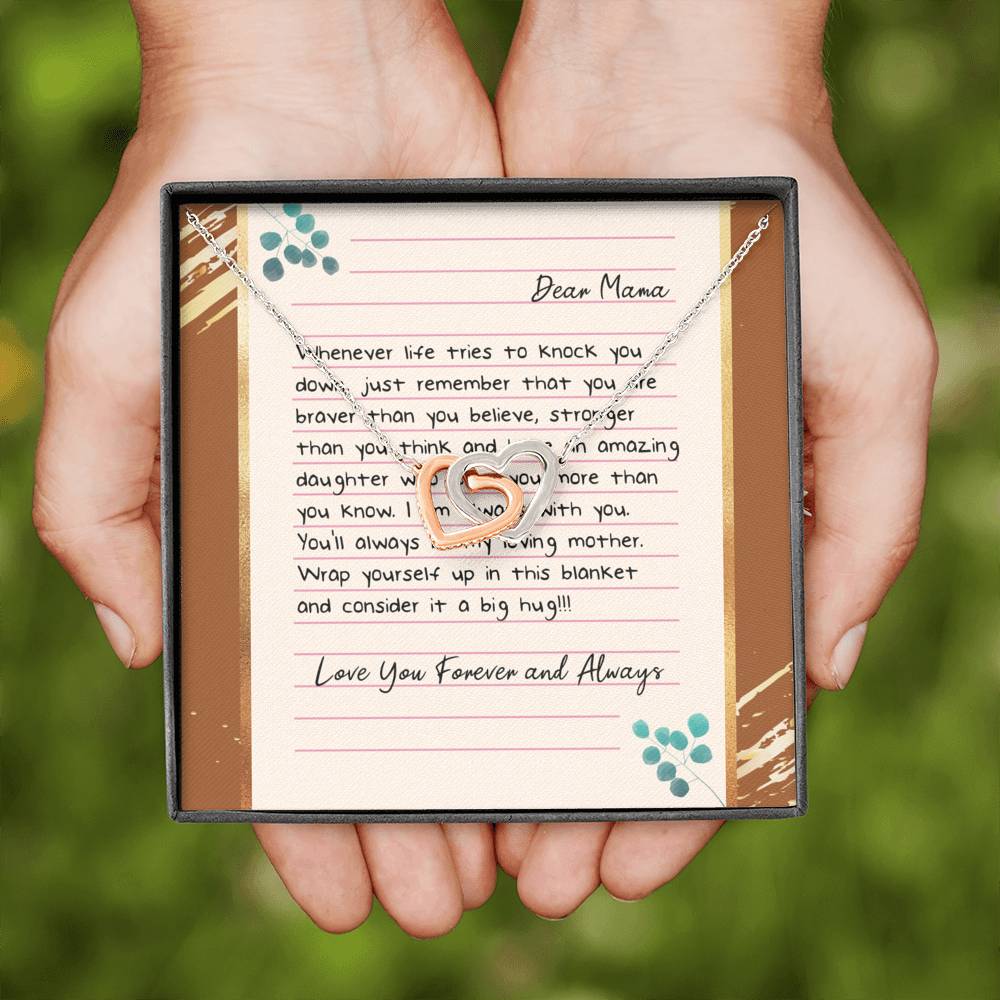 Dear Mama
Whenever life tries to knock you
down, just remember that you are
braver than you believe, stronger
than you think and have an amazing
daughter who you more than
you know. I am always with you.
You'll always my loving mother.
Wrap yourself up in this blanket
and consider it a big hug!!!
Love You Forever and Always